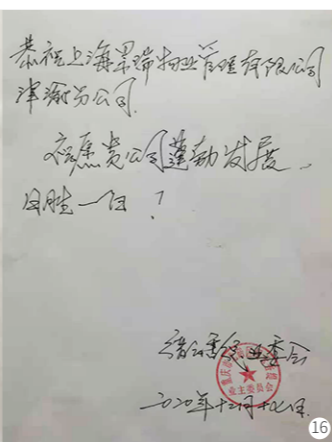 恭祝上海景瑞物业管理有限公司
津渝分公司
祝愿贵公司蓬勃发展、
日胜一日！
业委会
业主委员会
2020年十二月十七日
16